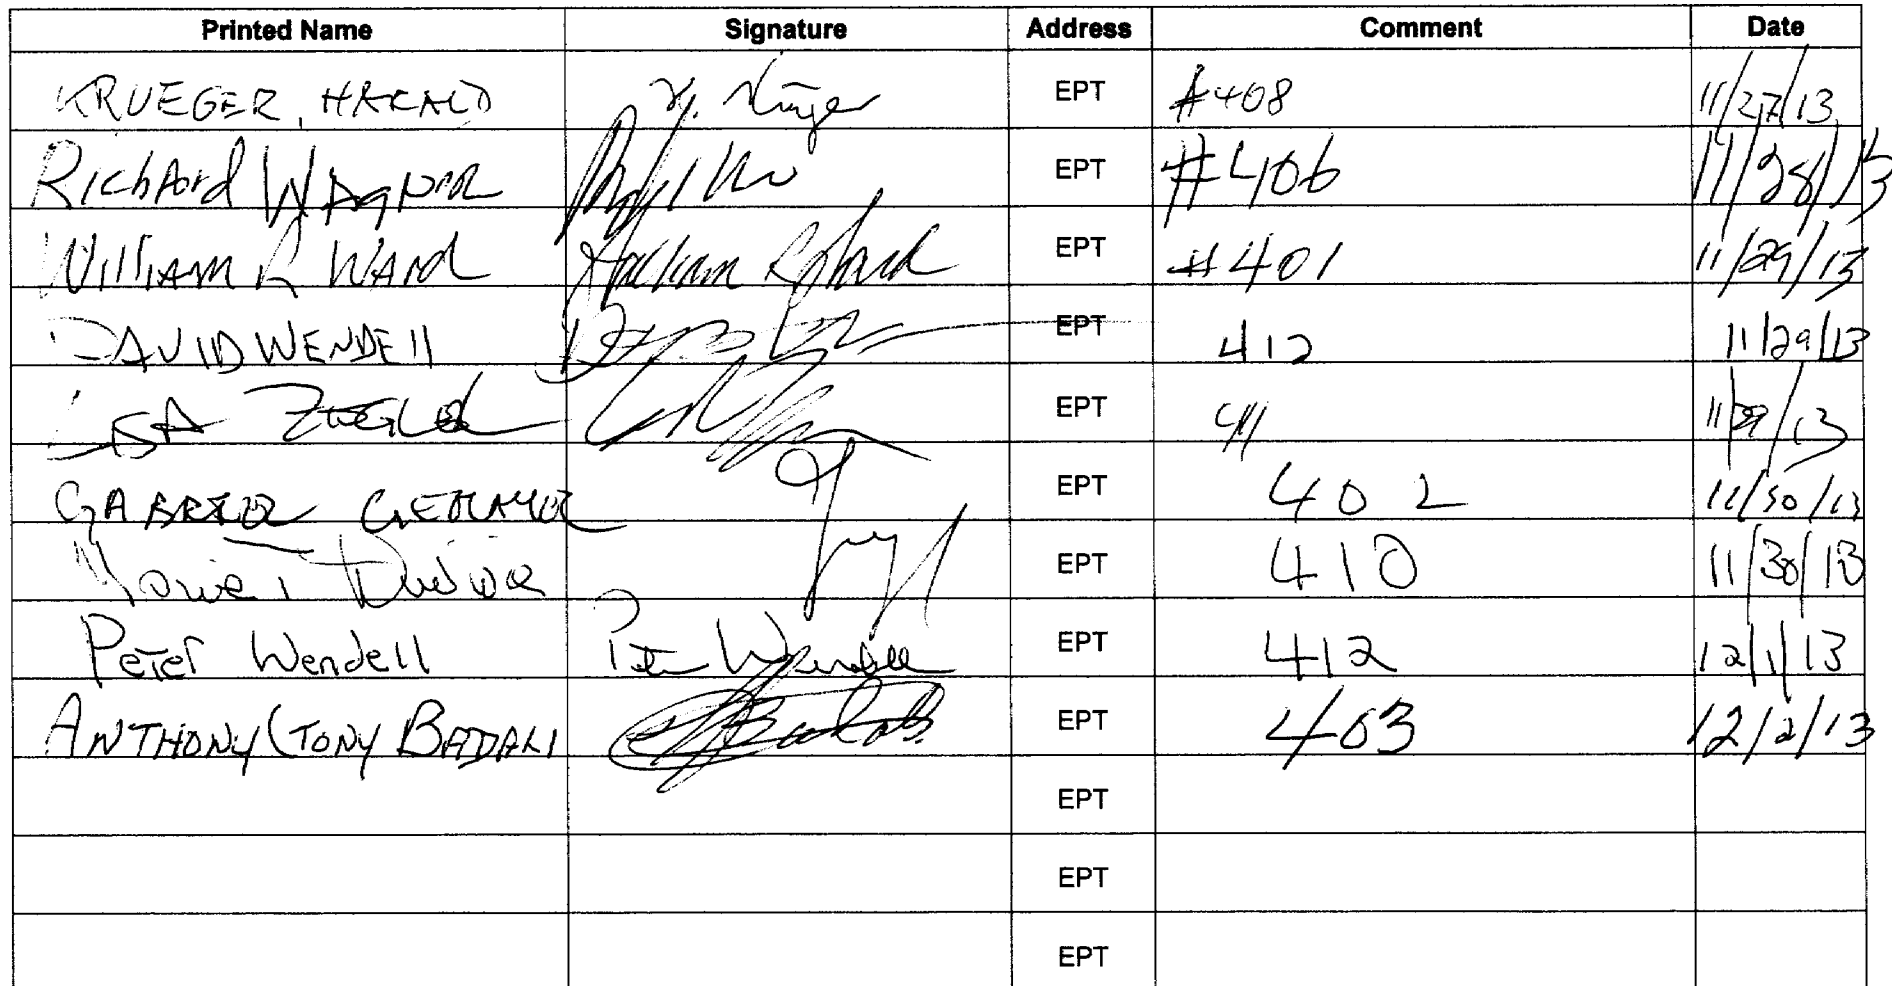 Printed Name Signature Address Comment Date
KRUEGER, HARALD H. Krüger EPT #408 11/27/13
Richard Wagner EPT #406 11/28/13
William R Ward William R Ward EPT #401 11/29/13
DAVID WENDEll EPT 412 11/29/13
LISA EPT 411 11/29/13
GABRIEL EPT 402 11/30/13
EPT 410 11/30/13
Peter Wendell Peter Wendell EPT 412 12/1/13
ANTHONY (TONY BADALI EPT 403 12/2/13
EPT
EPT
EPT